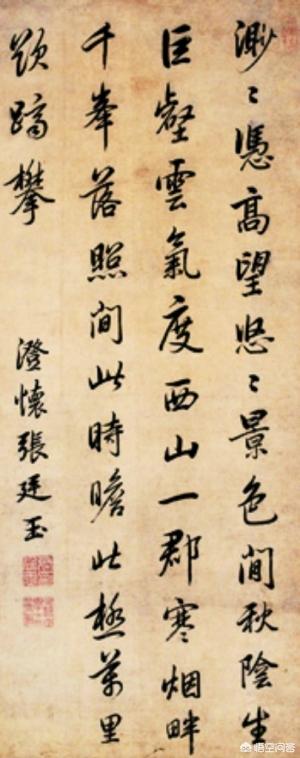 渺〻憑高望悠〻景色間秋陰生
巨壑雲氣度西山一郡寒烟畔
千峯落照間此時瞻此極萬里
欲躋攀
澄懷張廷玉
悟空问答